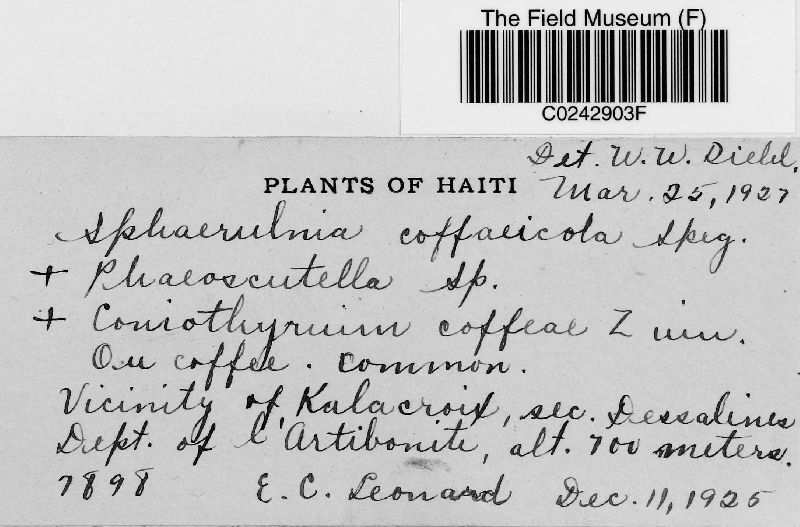 The Field Museum (F)
C0242903F
Det. W. W. Diehl.
PLANTS OF HAITI Mar. 25, 1927
Sphaerulnia coffaeicola Speg.
+ Phaeoscutella sp.
+ Coniothyrium coffeae Zim.
On coffee. common.
Vicinity of Kalacroix, sec. Dessalines
Dept. of l'Artibonite, alt. 700 meters.
7898 E. C. Leonard Dec. 11, 1925